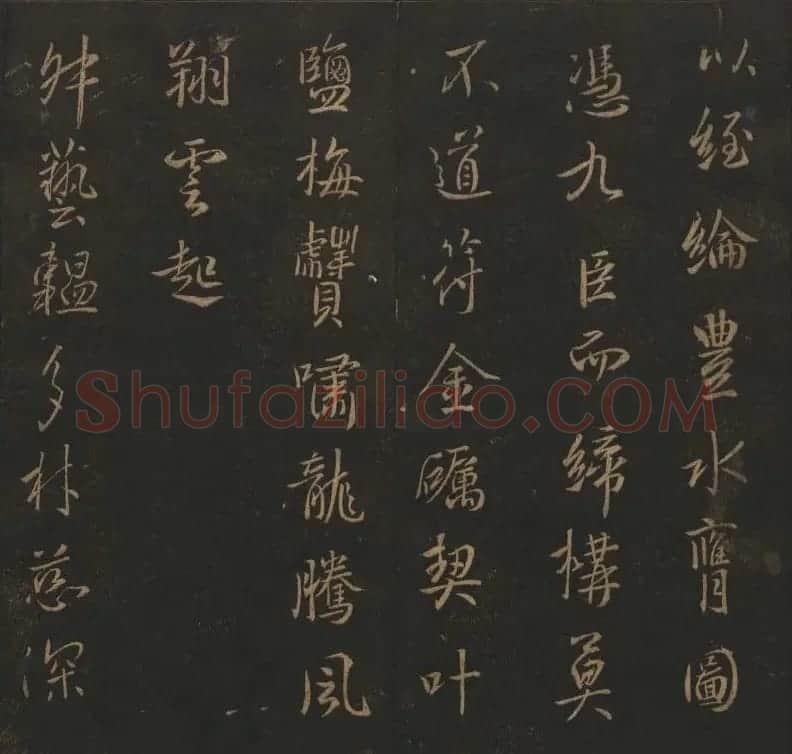 以經綸豐水膺圖
憑九臣而締構莫
不道符金礪契叶
鹽梅贙嘯龍騰風
翔雲起
藝韞多材慈深
Shufaziliao.COM